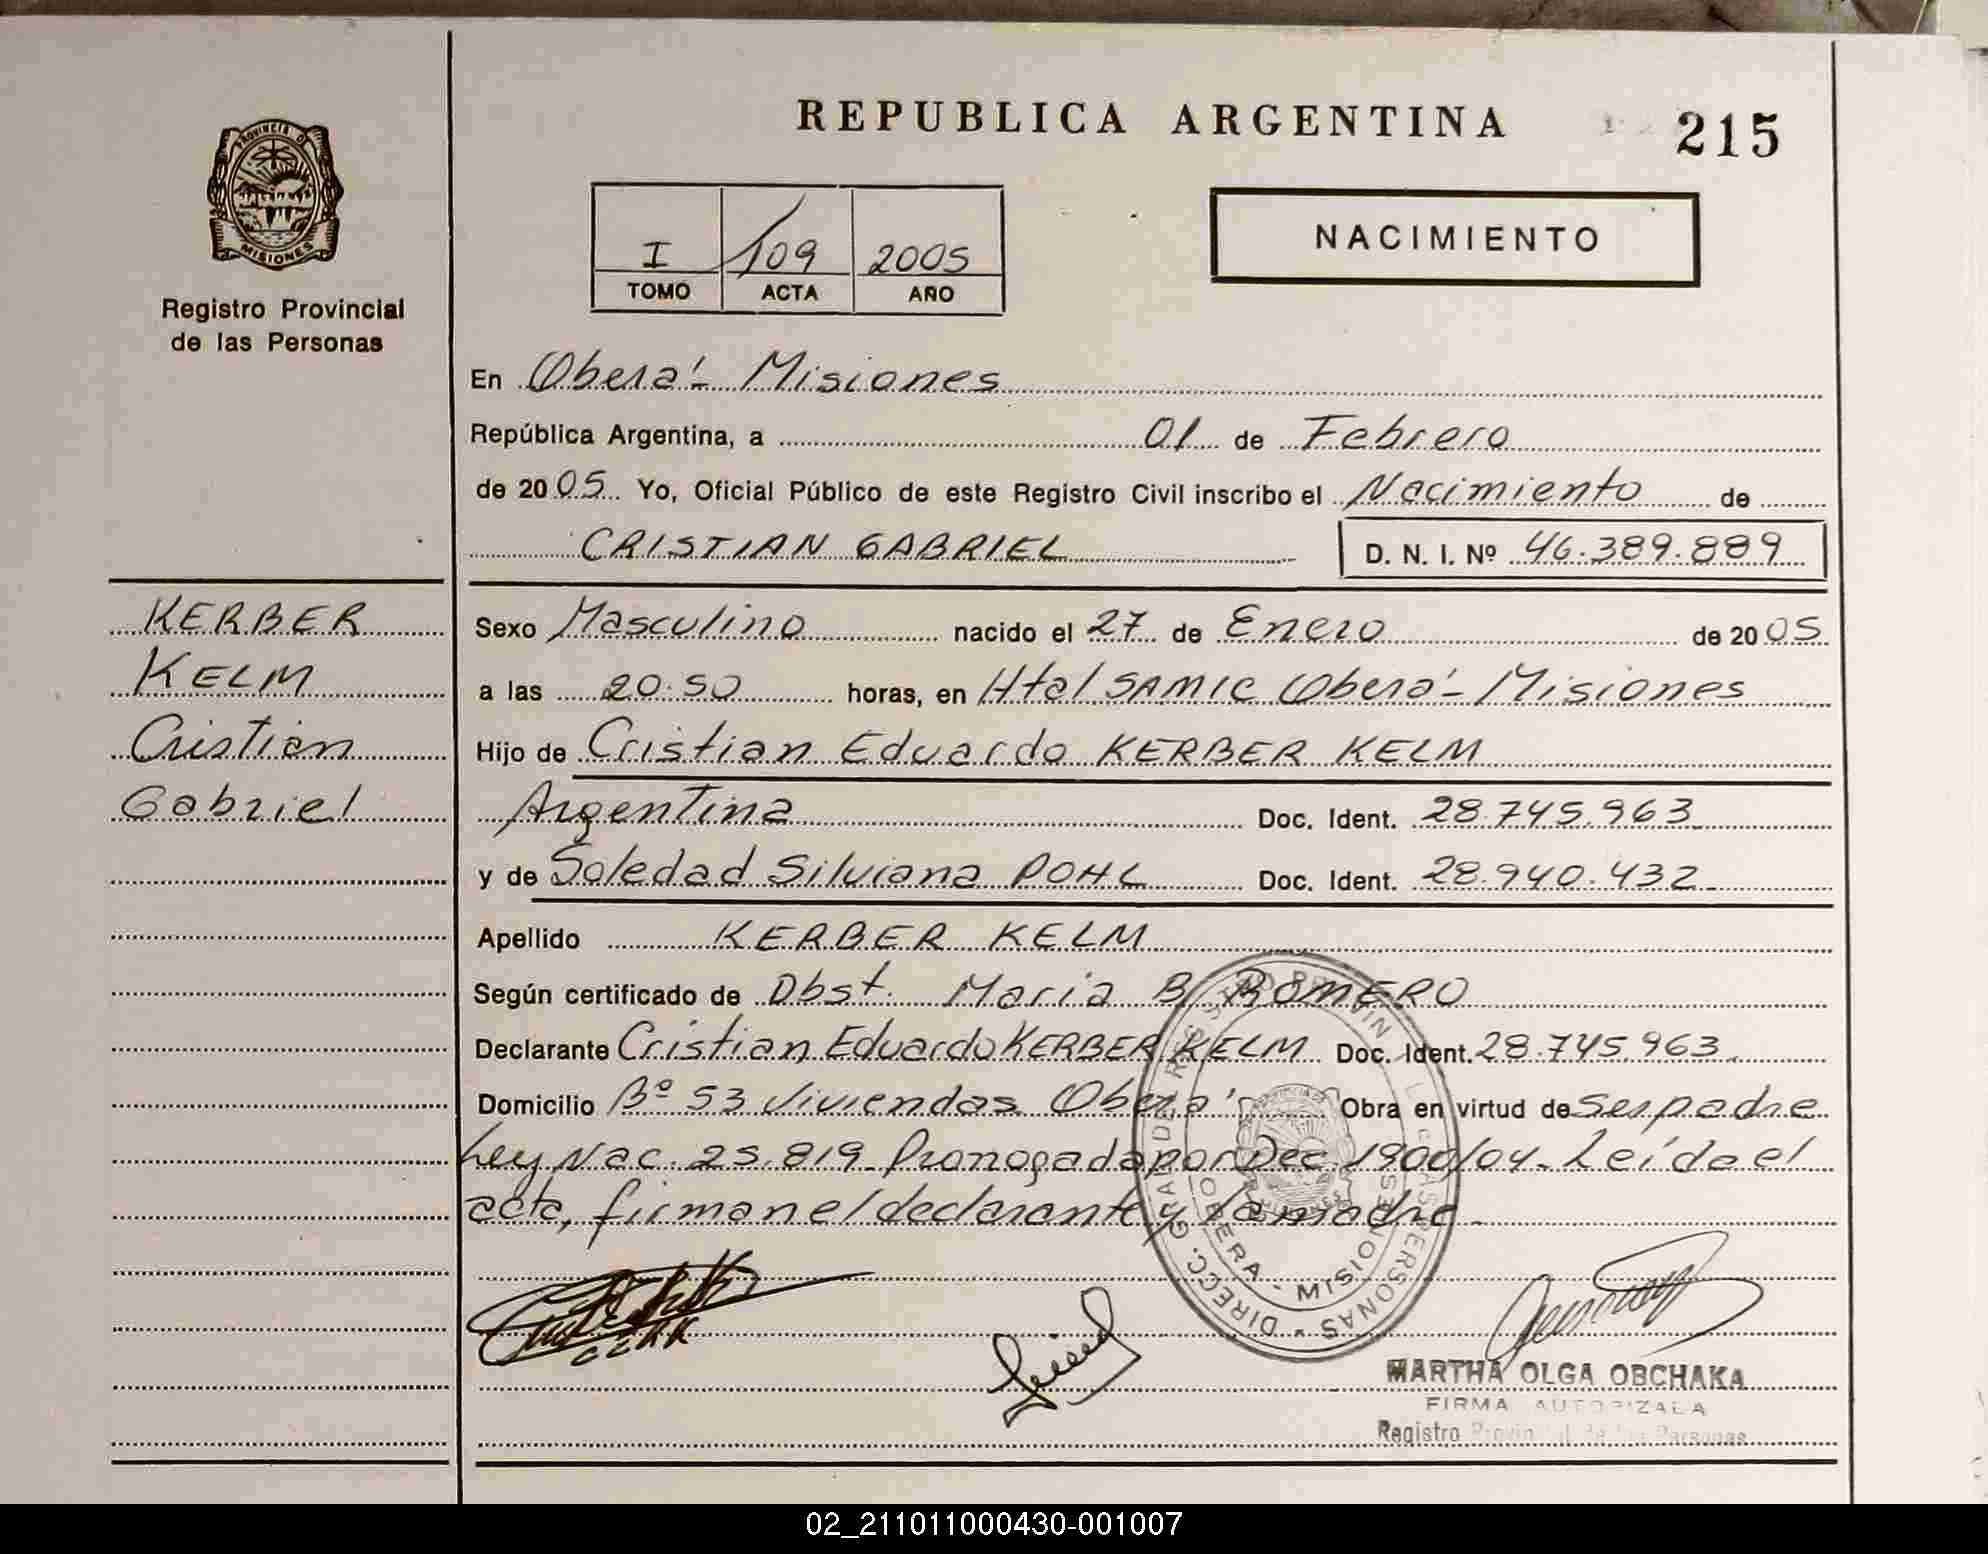 REPUBLICA ARGENTINA
215
PROVINCIA DE
MISIONES
Registro Provincial
de las Personas
I 109 2005
TOMO ACTA AÑO
NACIMIENTO
En Oberá - Misiones
República Argentina, a 01 de Febrero
de 2005 Yo, Oficial Público de este Registro Civil inscribo el Nacimiento de
CRISTIAN GABRIEL D. N. I. Nº 46.389.889
KERBER
KELM
Cristian
Gabriel
Sexo Masculino nacido el 27 de Enero de 2005
a las 20:50 horas, en Htal SAMIC Oberá - Misiones
Hijo de Cristian Eduardo KERBER KELM
Argentina Doc. Ident. 28.745.963
y de Soledad Silviana POHL Doc. Ident. 28.940.432
Apellido KERBER KELM
Según certificado de Obst. Maria B. ROMERO
Declarante Cristian Eduardo KERBER KELM Doc. Ident. 28.745.963
Domicilio Bº 53 Viviendas Oberá Obra en virtud de Ser padre
Ley Nac. 25.819 Prorrogada por Dec. 1900/04. Leída el
acta, firman el declarante y la madre.
OBERA - MISIONES
MARTHA OLGA OBCHAKA
FIRMA AUTORIZADA
Registro Provincial de las Personas
02_211011000430-001007